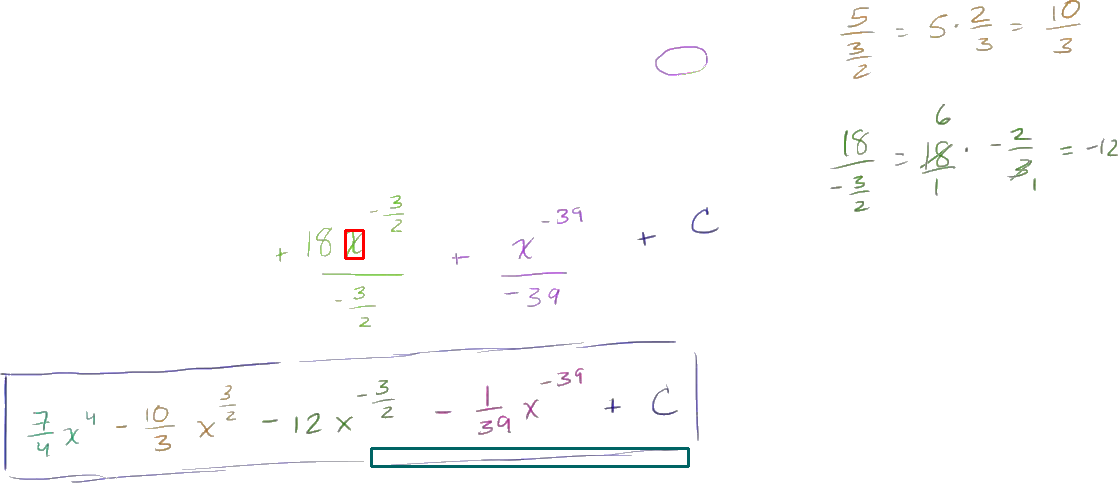 5/(3/2) = 5 · 2/3 = 10/3
18/(-3/2) = 6 18/1 · -2/3 1 = -12
+ 18x^(-3/2)/(-3/2) + x^(-39)/(-39) + C
7/4 x^4 - 10/3 x^(3/2) - 12x^(-3/2) - 1/39 x^(-39) + C